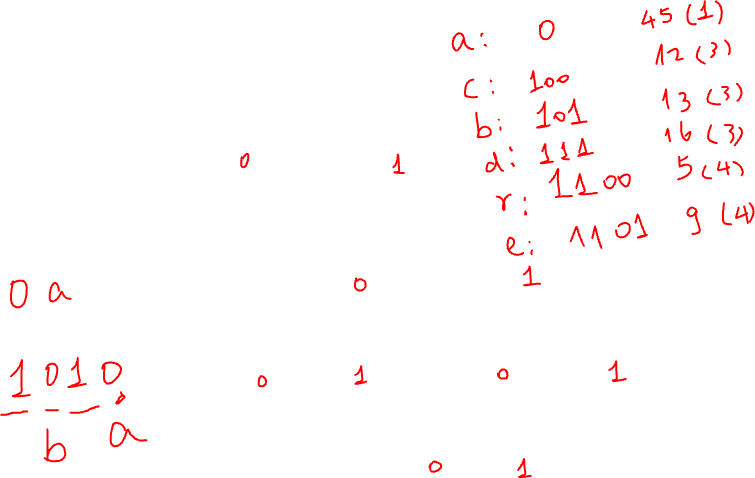 a: 0 45 (1)
c: 100 12 (3)
b: 101 13 (3)
d: 111 16 (3)
r: 1100 5 (4)
e: 1101 9 (4)
0 1
0 a
0 1
1010
b a
0 1 0 1
0 1